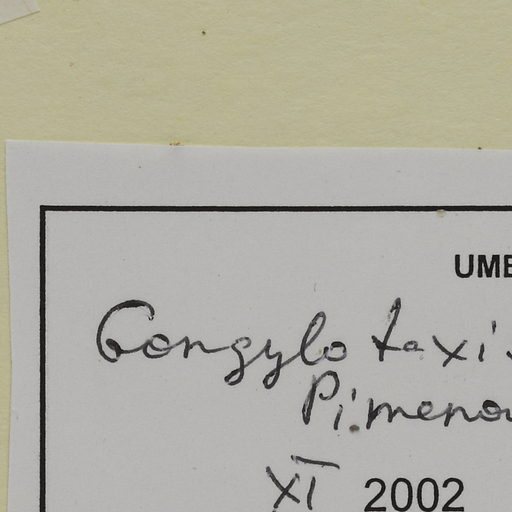 UMBE
Gongylotaxis
Pimenov
XI 2002